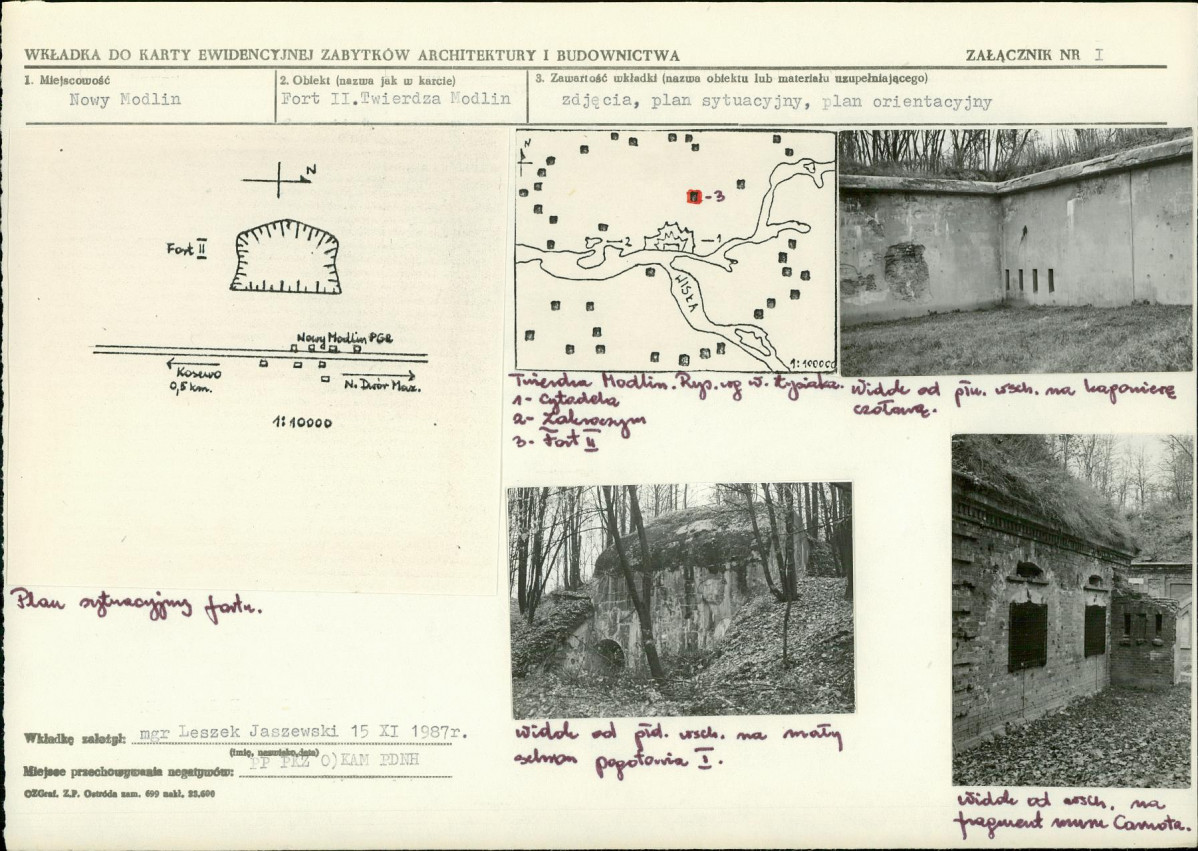 WKŁADKA DO KARTY EWIDENCYJNEJ ZABYTKÓW ARCHITEKTURY I BUDOWNICTWA
ZAŁĄCZNIK NR I
1. Miejscowość
Nowy Modlin
2. Obiekt (nazwa jak w karcie)
Fort II.Twierdza Modlin
3. Zawartość wkładki (nazwa obiektu lub materiału uzupełniającego)
zdjęcia, plan sytuacyjny, plan orientacyjny
N
Fort II
Nowy Modlin PGR
Kosewo
0,5 km.
N. Dwór Maz.
1:10000
Plan sytuacyjny fortu.
N
3
2
1
WISŁA
1:100000
Twierdza Modlin. Rys. wg W. Łysiaka.
1- Cytadela
2- Zakroczym
3- Fort II
Widok od płn. wsch. na kaponierę
czołową.
Widok od płd. wsch. na mały
schron pogotowia I.
Widok od wsch. na
fragment muru Carnota.
Wkładkę założył: mgr Leszek Jaszewski 15 XI 1987r.
(imię, nazwisko, data)
PP PKZ O)KAM PDNH
Miejsce przechowywania negatywów:
OZGraf. Z.P. Ostróda zam. 699 nakł. 22,600